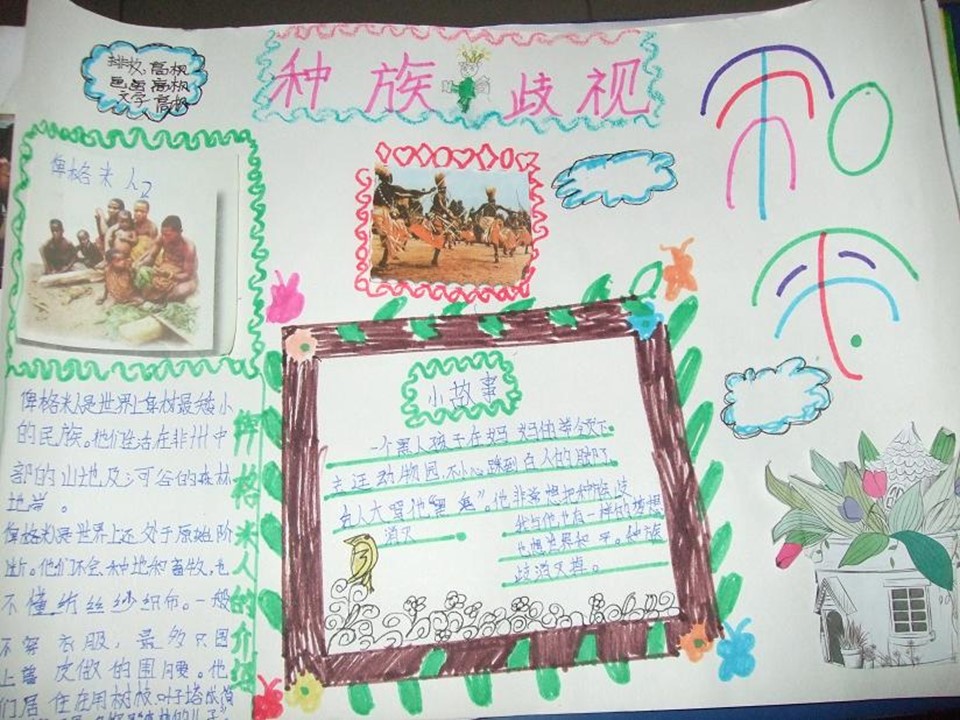 排版:高枫
画画:高枫
文字:高枫
种族歧视
俾格米人
小故事
一个黑人孩子在妈妈的带领下
去逛动物园,不小心踩到白人的脚了,
白人大骂他"黑鬼"。他非常想把种族歧
消灭
我与他也有一样的梦想
也想世界和平。种族
歧消灭掉。
俾格米人的介绍
俾格米人是世界上身材最矮小
的民族。他们生活在非州中
部的山地及河谷的森林
地带。
俾格米人是世界上还处于原始阶
段。他们不会种地和畜牧,也
不懂纺丝纱织布。一般
不穿衣服,最多只围
上兽皮做的围腰。他
们居住在用树枝、叶子搭成简